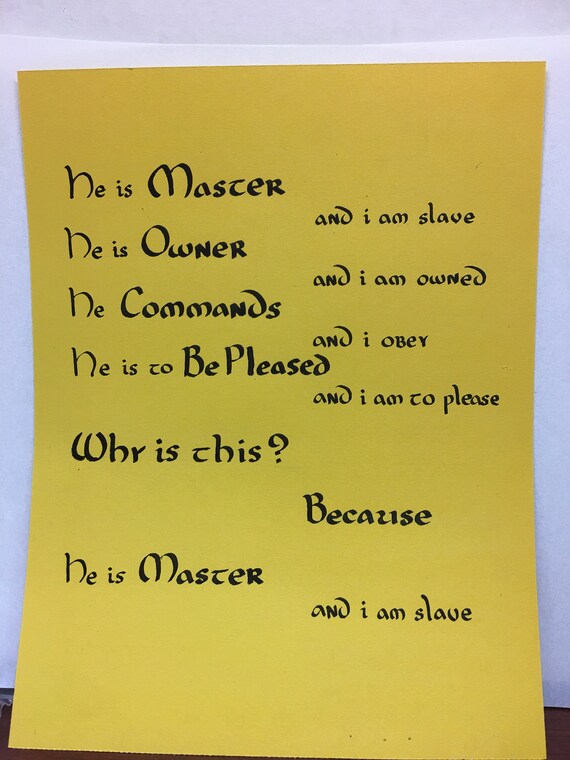 He is Master
and i am slave
He is Owner
and i am owned
He Commands
and i obey
He is to Be Pleased
and i am to please
Why is this?
Because
He is Master
and i am slave